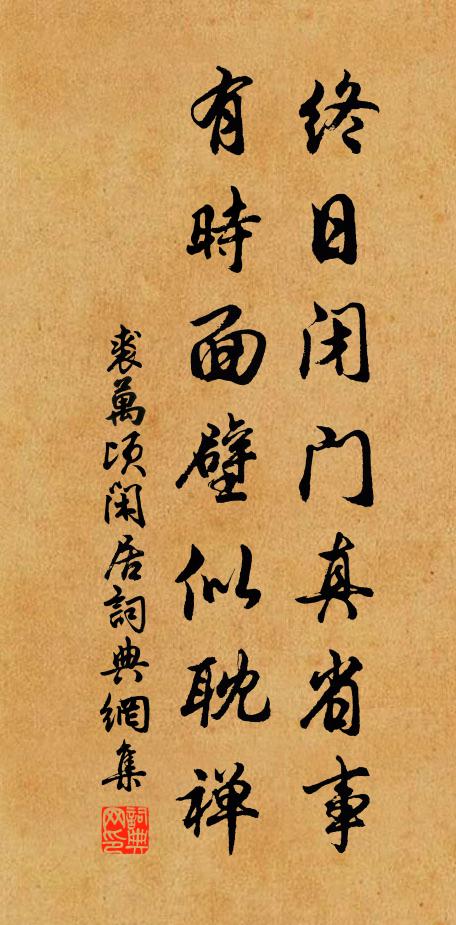 终日闭门真省事
有時面壁似耽禅
裘萬頃閑居詞典網集
詞典网印